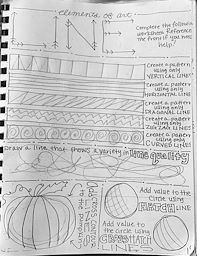 elements of art
Complete the following
worksheet. Reference
the front if you need
help!
Create a pattern
using only
VERTICAL LINES
Create a pattern
using only
HORIZONTAL LINE
Create a pattern
using only
DIAGONAL LINES
Create a pattern
using only
ZIGZAG LINES
Create a pattern
using only
CURVED LINES
Draw a line that shows a variety in line quality
ADD
CROSS CONTOUR
LINES
to the pumpkin
Add value to
the Circle using
HATCH LINE
Add value to
the circle using
CROSSHATCH
LINES